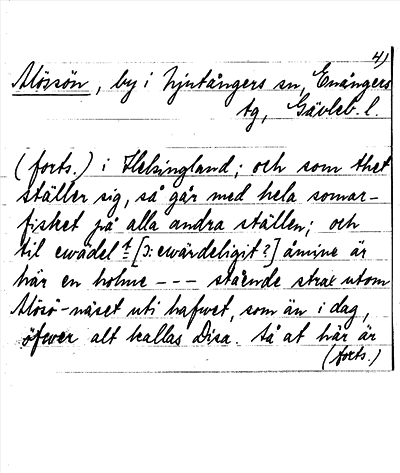 4)
Mössön, by i Njutångers sn, Enångers
tg, Gävleb. l.
(forts.) i Helsingland; och som thet
ställer sig, så går med hela somar-
fisket på alla andra ställen; och
til ewädel t [ɔ: ewärdeligit?] åmine är
här en holme --- stående strax utom
Mösö-näset uti hafwet, som än i dag,
öfwer alt kallas Disa. så at här är
(forts.)